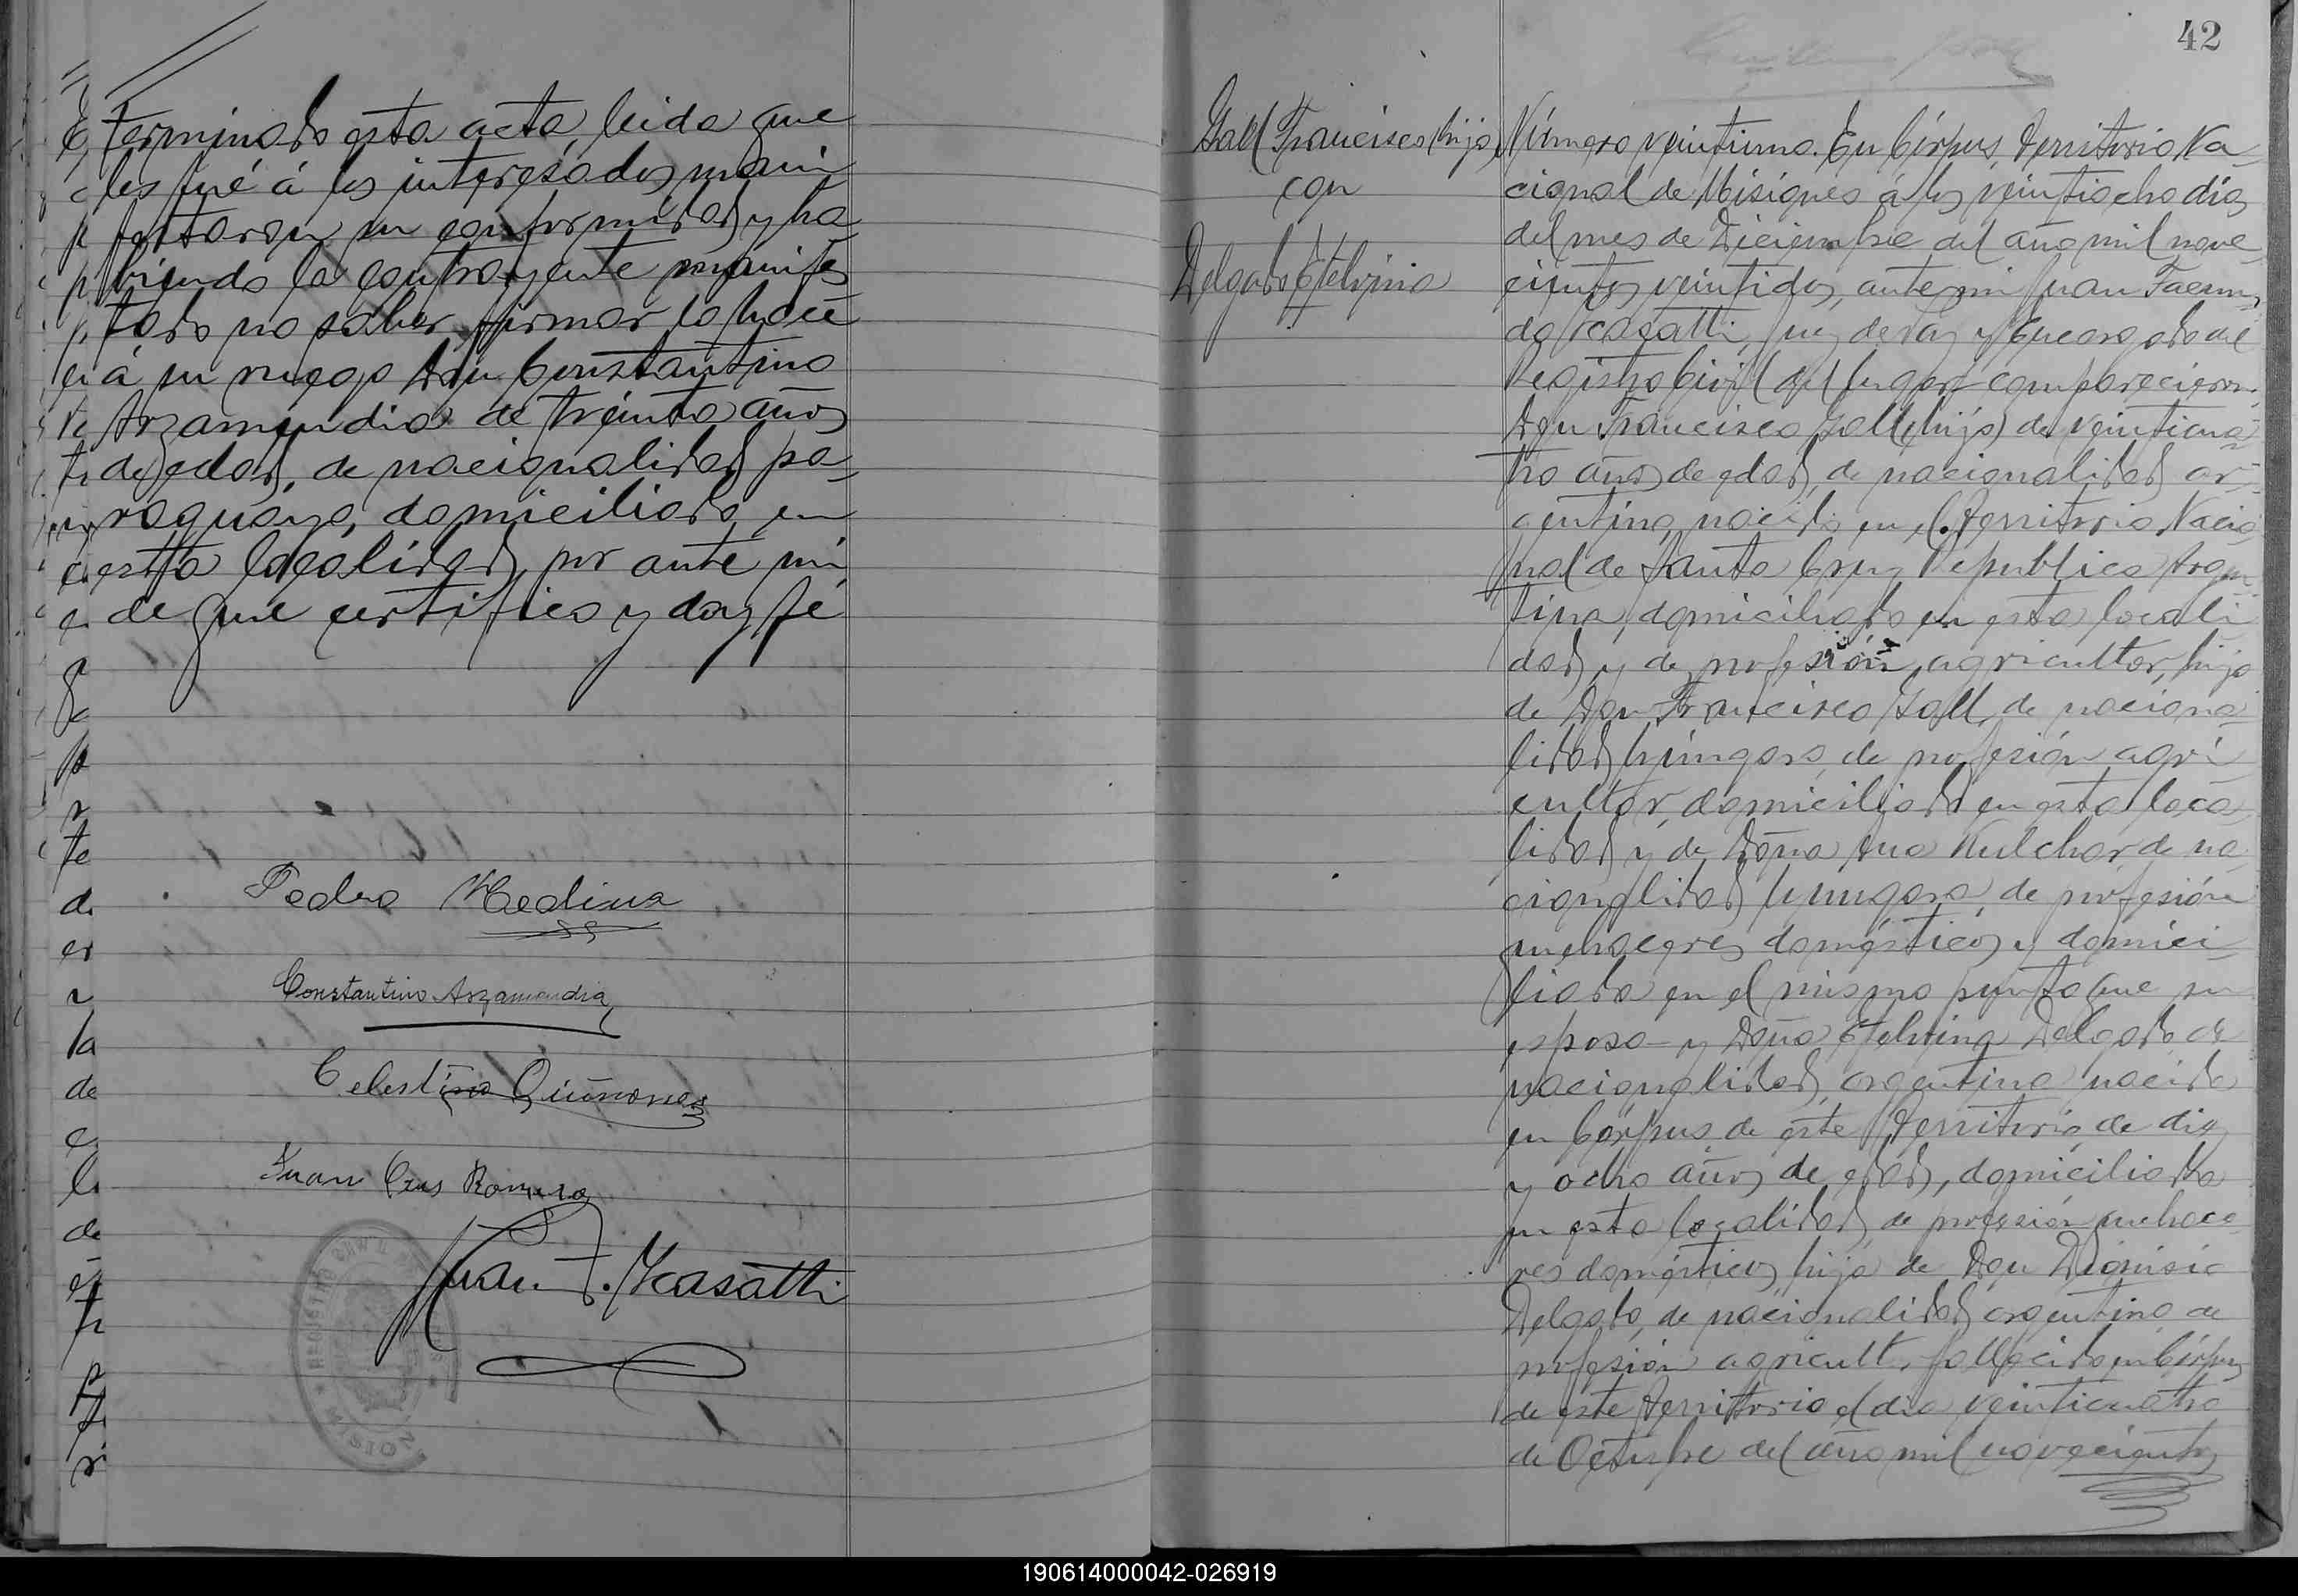 Terminada esta acta, leida que
les fué á los interesados mani
festaron su conformidad y ha
biendo la contrayente manifes
tado no saber firmar lo hace
á su ruego Don Constantino
Arzamendia de treinta años
de edad, de nacionalidad pa
raguaya, domiciliado en
esta localidad, por ante mi
de que certifico y doy fé
Pedro Medina
Constantino Arzamendia
Celestino Quiñones
Juan Cruz Romero
Juan F. Casatti
REGISTRO CIVIL
MISIONES
42
Gall Francisco (hijo)
con
Delgado Etelvina
Número veintiuno. En Córpus, Territorio Na
cional de Misiones á los veintiocho dias
del mes de Diciembre del año mil nove
cientos veintidos, ante mi Juan Facun
do Casatti, Juez de Paz y Encargado del
Registro Civil del lugar comparecieron
Don Francisco Gall (hijo) de veinticua
tro años de edad, de nacionalidad ar
gentina, nacido en el Territorio Nacio
nal de Santa Cruz República Argen
tina, domiciliado en esta locali
dad y de profesión agricultor, hijo
de Don Francisco Gall, de naciona
lidad húngara, de profesión agri
cultor, domiciliado en esta loca
lidad y de Doña Ana Kulchar, de na
cionalidad hungara, de profesión
quehaceres domésticos y domici
liada en el mismo punto que su
esposo y Doña Etelvina Delgado de
nacionalidad argentina nacida
en Córpus de este Territorio, de diez
y ocho años de edad, domiciliada
en esta localidad, de profesión quehace
res domésticos, hija de Don Dionisio
Delgado, de nacionalidad argentino de
profesión agricult. fallecido en Córpus
de este Territorio el dia veinticuatro
de Octubre del año mil novecientos
190614000042-026919